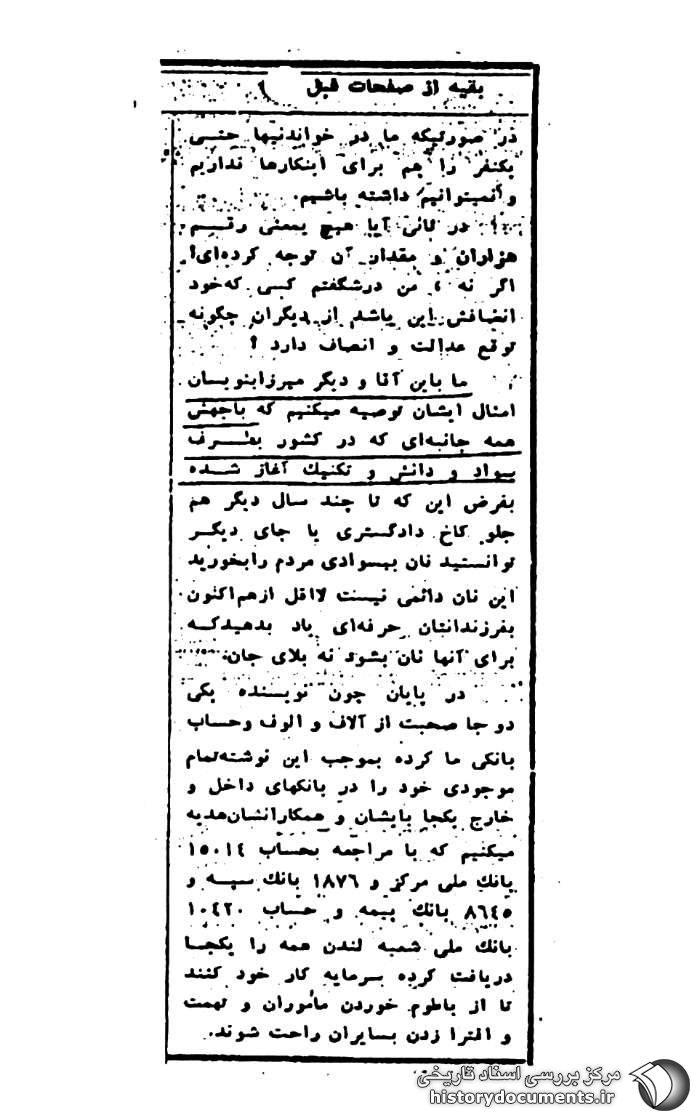 بقیه از صفحات قبل
در صورتیکه ما در خواندنیها حتــی
یکنفر را هم برای اینکارها نداریم
و نمیتوانیم داشته باشیم.
در ثانی آیا هیچ بمعنی رقــم
هزاران و مقدار آن توجه کرده‌ای؟
اگر نه ، من درشگفتم کسی که‌خود
انصافش این باشد از دیگران چگونه
توقع عدالت و انصاف دارد ؟
ما باین آقا و دیگر میرزابنویسان
امثال ایشان توصیه میکنیم که باجهش
همه جانبه‌ای که در کشور بطــرف
سواد و دانش و تکنیك آغاز شــده
بفرض این که تا چند سال دیگر هم
جلو کاخ دادگستری یا جای دیگــر
توانستید نان بیسوادی مردم رابخورید
این نان دائمی نیست لااقل ازهم‌اکنون
بفرزندانتان حرفه‌ای یاد بدهیدکــه
برای آنها نان بشود نه بلای جان.
در پایان چون نویسنده یکی
دو جا صحبت از آلاف و الوف وحساب
بانکی ما کرده بموجب این نوشته‌تمام
موجودی خود را در بانکهای داخل و
خارج یکجا بایشان و همکارانشان‌هدیه
میکنیم که با مراجعه بحساب ۱۵۰۱۴
بانك ملی مرکز و ۱۸۷۶ بانك سپــه و
۸۶۴۵ بانك بیمه و حساب ۱۰۴۲۰
بانك ملی شعبه لندن همه را یکجــا
دریافت کرده سرمایه کار خود کنند
تا از باطوم خوردن مأموران و تهمت
و افترا زدن بسایران راحت شوند.
مرکز بررسی اسناد تاریخی
historydocuments.ir